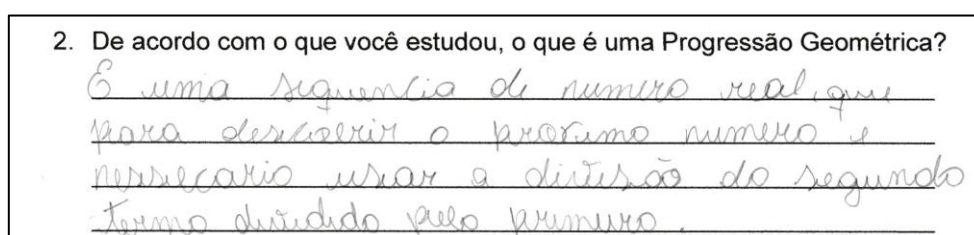 2. De acordo com o que você estudou, o que é uma Progressão Geométrica?
É uma sequencia de numero real, que
para descobrir o proximo numero e
nessecario usar a divisão do segundo
termo dividido pelo primeiro.